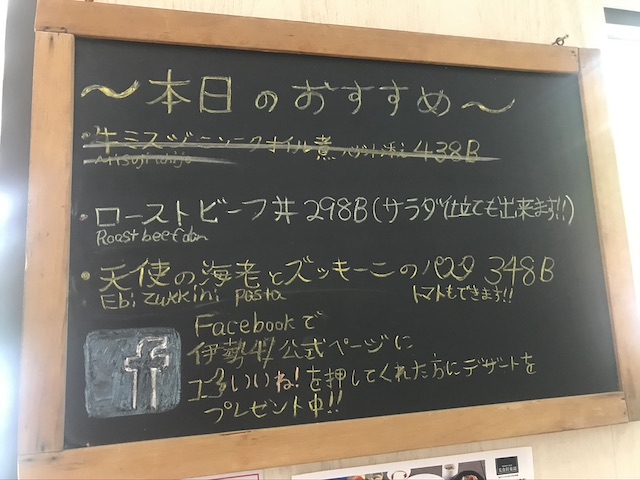 ～本日のおすすめ～
・牛ミスジニンニクオイル煮 438B
・ローストビーフ丼 298B(サラダ仕立ても出来ます!!)
Roast beef don
・天使の海老とズッキーニのパスタ 348B
Ebi zukkini pasta
トマトもできます!!
f
Facebookで
伊勢公式ページに
いいね!を押してくれた方にデザートを
プレゼント中!!